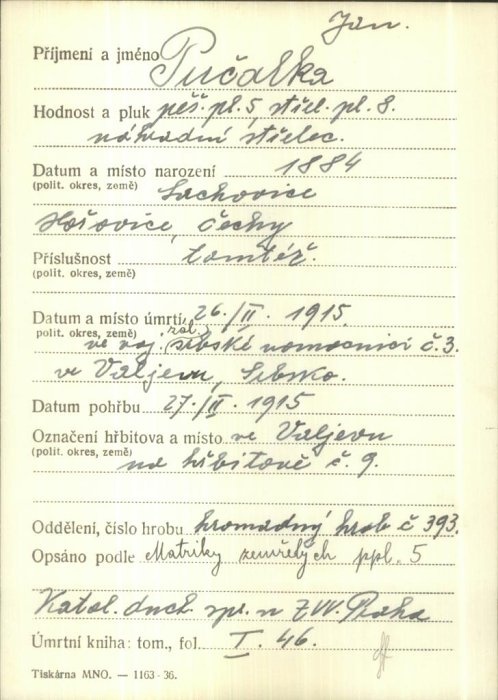 Jan.
Příjmení a jméno Pučalka
Hodnost a pluk pěš. pl. 5, střel. pl. 8.
náhradní střelec.
Datum a místo narození 1884
(polit. okres, země) Lachovice
Hořovice, Čechy
Příslušnost tamtéž.
(polit. okres, země)
Datum a místo úmrtí 26./II. 1915.
polit. okres, země) zál.
ve voj. srbské nemocnici č. 3.
ve Valjevu, Srbsko.
Datum pohřbu 27./II. 1915
Označení hřbitova a místo ve Valjevu
(polit. okres, země) na hřbitově č. 9.
Oddělení, číslo hrobu hromadný hrob č 393.
Opsáno podle Matriky zemřelých ppl. 5
Katol. duch. spr. n ZVV. Praha
Úmrtní kniha: tom., fol. I. 46.
Tiskárna MNO. — 1163-36.